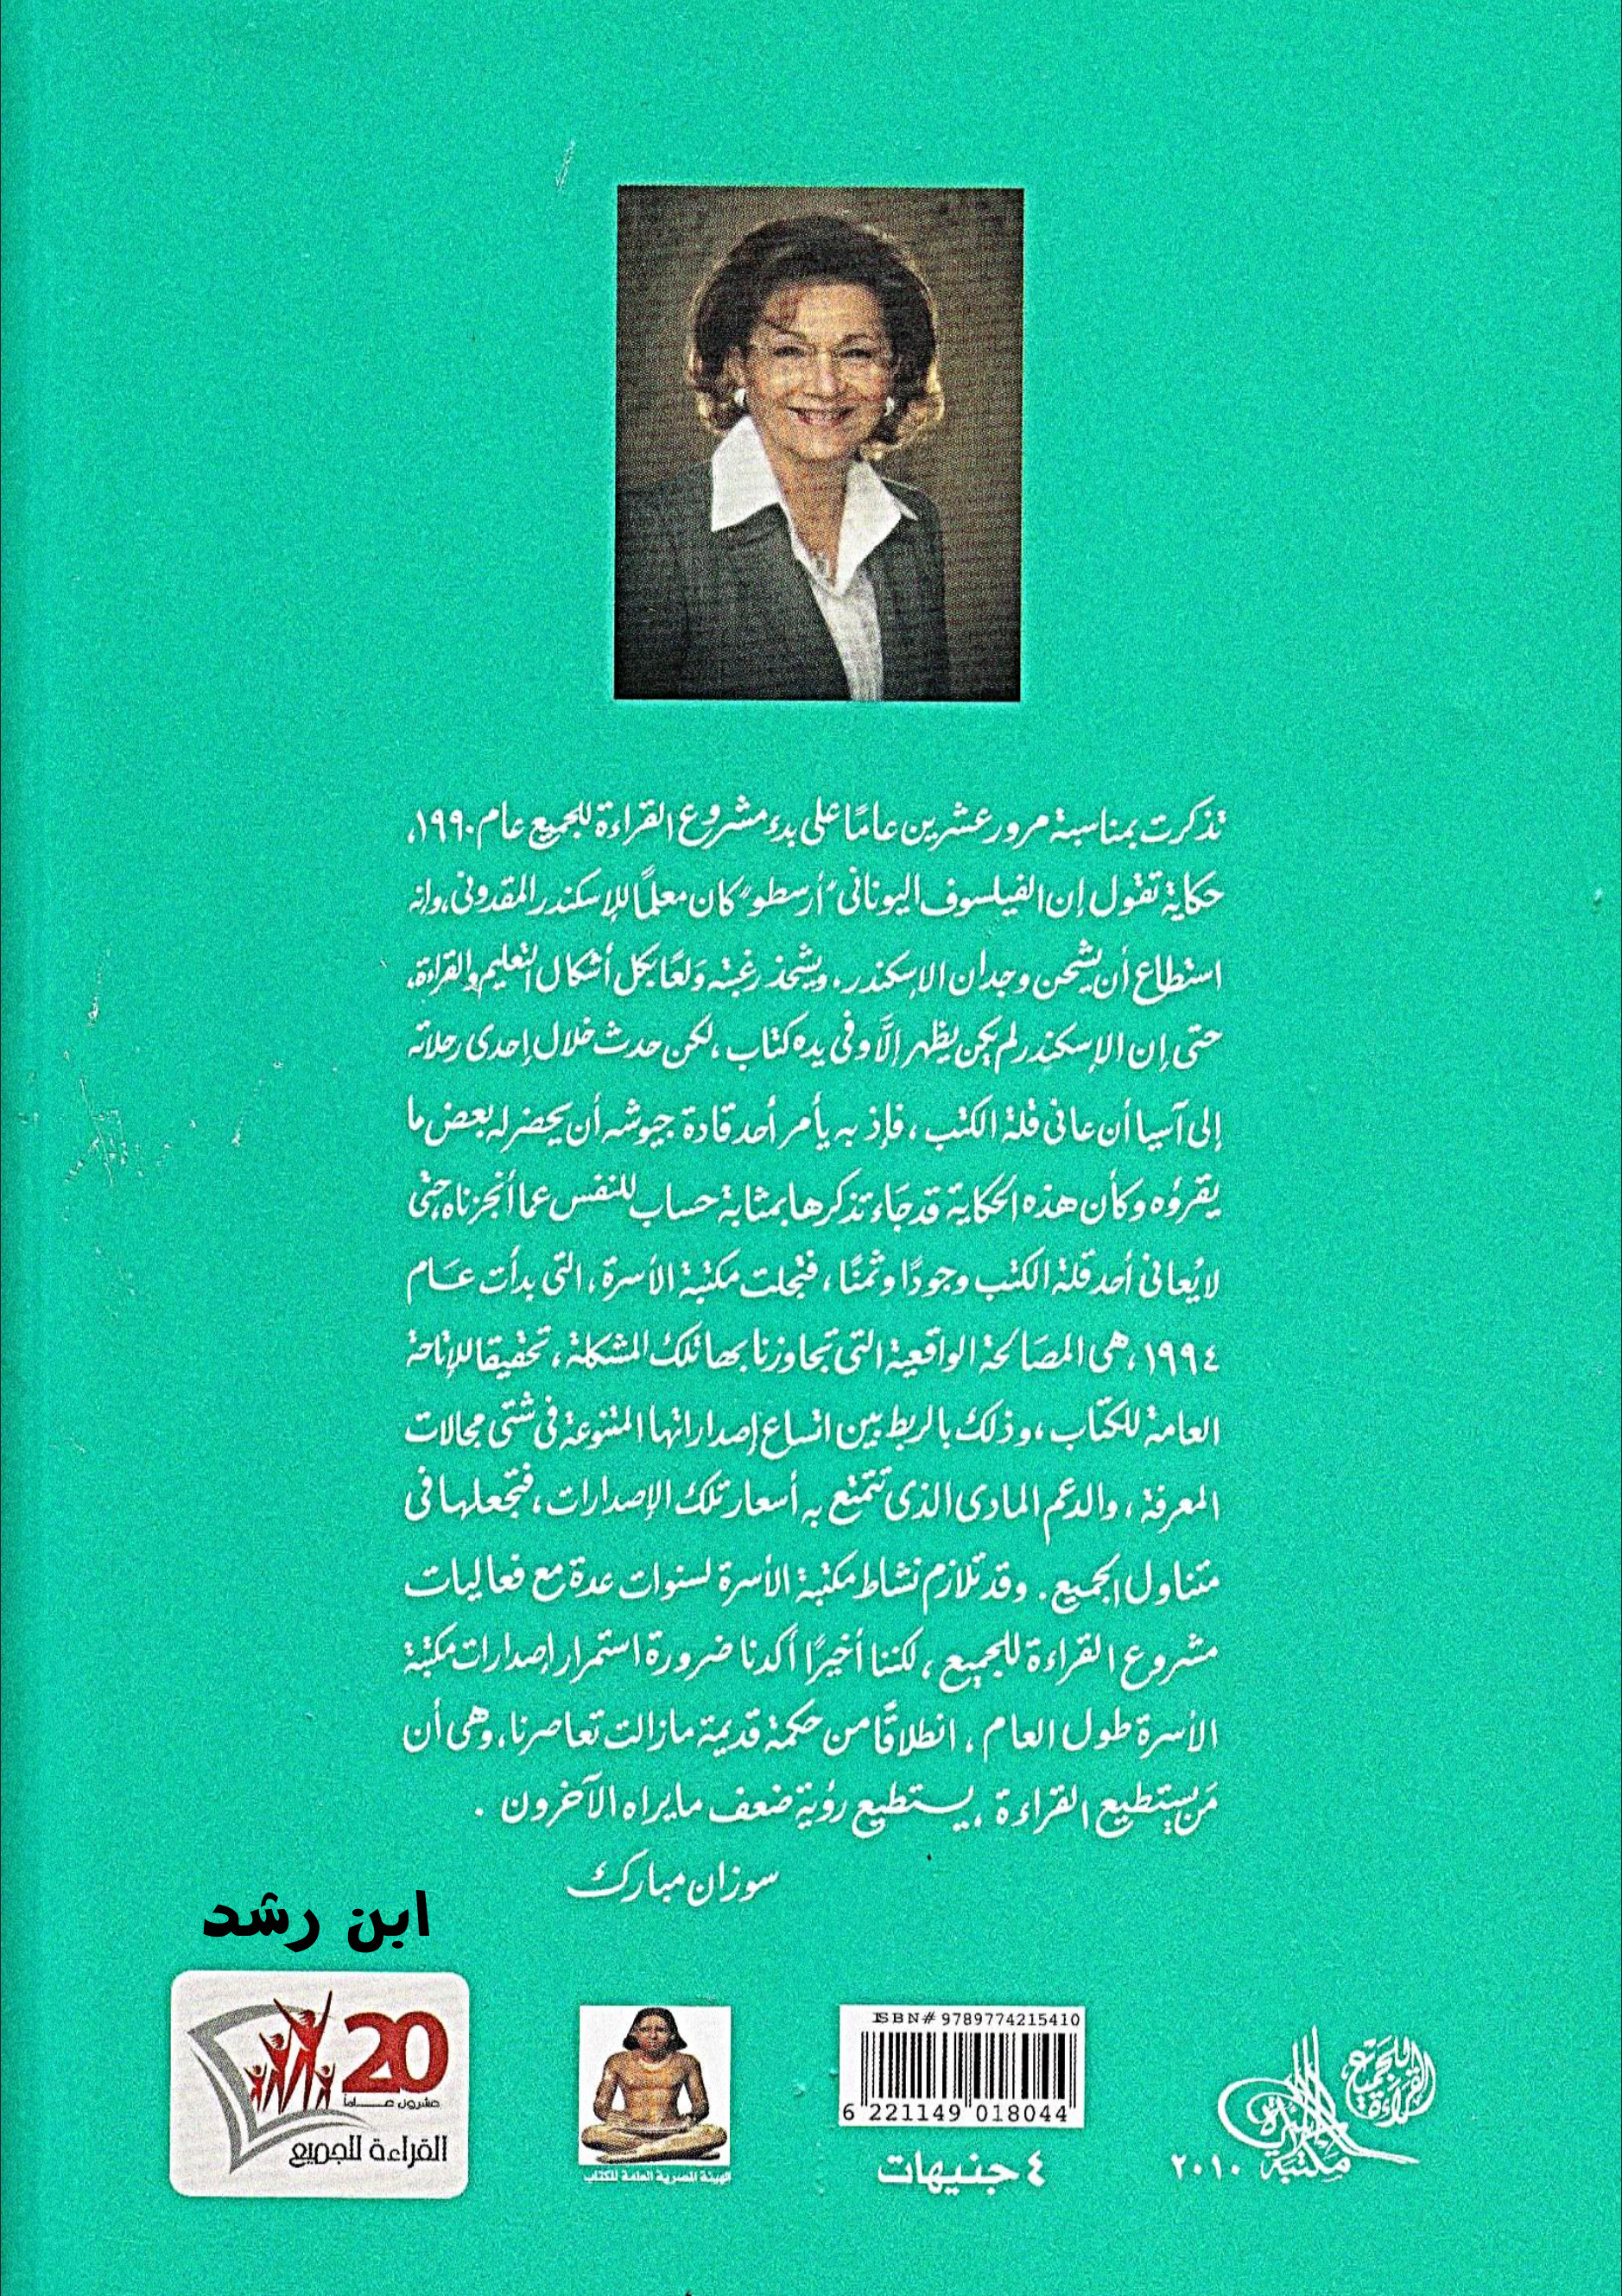 تذكرت بمناسبة مرور عشرين عامًا على بدء مشروع القراءة للجميع عام ١٩٩٠،
حكاية تقول إن الفيلسوف اليونانى "أرسطو" كان معلمًا للإسكندر المقدونى، وإنه
استطاع أن يشحن وجدان الإسكندر. ويشحذ رغبته وَلعًا بكل أشكال التعليم والقراءة،
حتى إن الإسكندر لم يكن يظهر إلَّا وفى يده كتاب، لكن حدث خلال إحدى رحلاته
إلى آسيا أن عانى قلة الكتب، فإذ به يأمر أحد قادة جيوشه أن يحضر له بعض ما
يقرؤه وكأن هذه الحكاية قد جَاء تذكرها بمثابة حساب للنفس عما أنجزناه حتى
لا يُعانى أحد قلة الكتب وجودًا وثمنًا، فتجلت مكتبة الأسرة، التى بدأت عَام
١٩٩٤، هى المصَالحة الواقعية التى تجاوزنا بها تلك المشكلة، تحقيقا للإتاحة
العامة للكتاب، وذلك بالربط بين اتساع إصداراتها المتنوعة فى شتى مجالات
المعرفة، والدعم المادى الذى تتمتع به أسعار تلك الإصدارات، فتجعلها فى
متناول الجميع. وقد تلازم نشاط مكتبة الأسرة لسنوات عدة مع فعاليات
مشروع القراءة للجميع، لكننا أخيرًا أكدنا ضرورة استمرار إصدارات مكتبة
الأسرة طول العام، انطلاقًا من حكمة قديمة مازالت تعاصرنا، وهى أن
مَن يستطيع القراءة، يستطيع رؤية ضعف مايراه الآخرون .
سوزان مبارك
ابن رشد
20
عشرون عــاماً
القراءة للجميع
الهيئة المصرية العامة للكتاب
ISBN# 9789774215410
6 221149 018044
٤ جنيهات
القراءة للجميع
مكتبة الأسرة
٢٠١٠